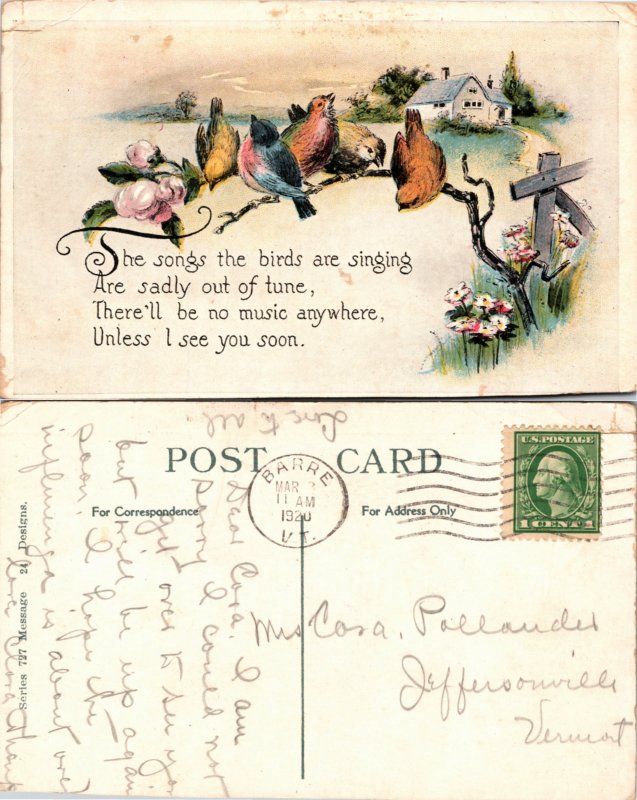 The songs the birds are singing
Are sadly out of tune,
There'll be no music anywhere,
Unless I see you soon.
POST CARD
For Correspondence
For Address Only
Series 727 Message 24 Designs.
BARRE
MAR 3
11 AM
1920
VT.
U.S. POSTAGE
1 CENT 1
Dear Cora. I am
sorry I could not
get over to see you
but will be up again
soon. I hope the
influenza is about over
Love Clara
Love to all
Mrs Cora. Pollander
Jeffersonville
Vermont